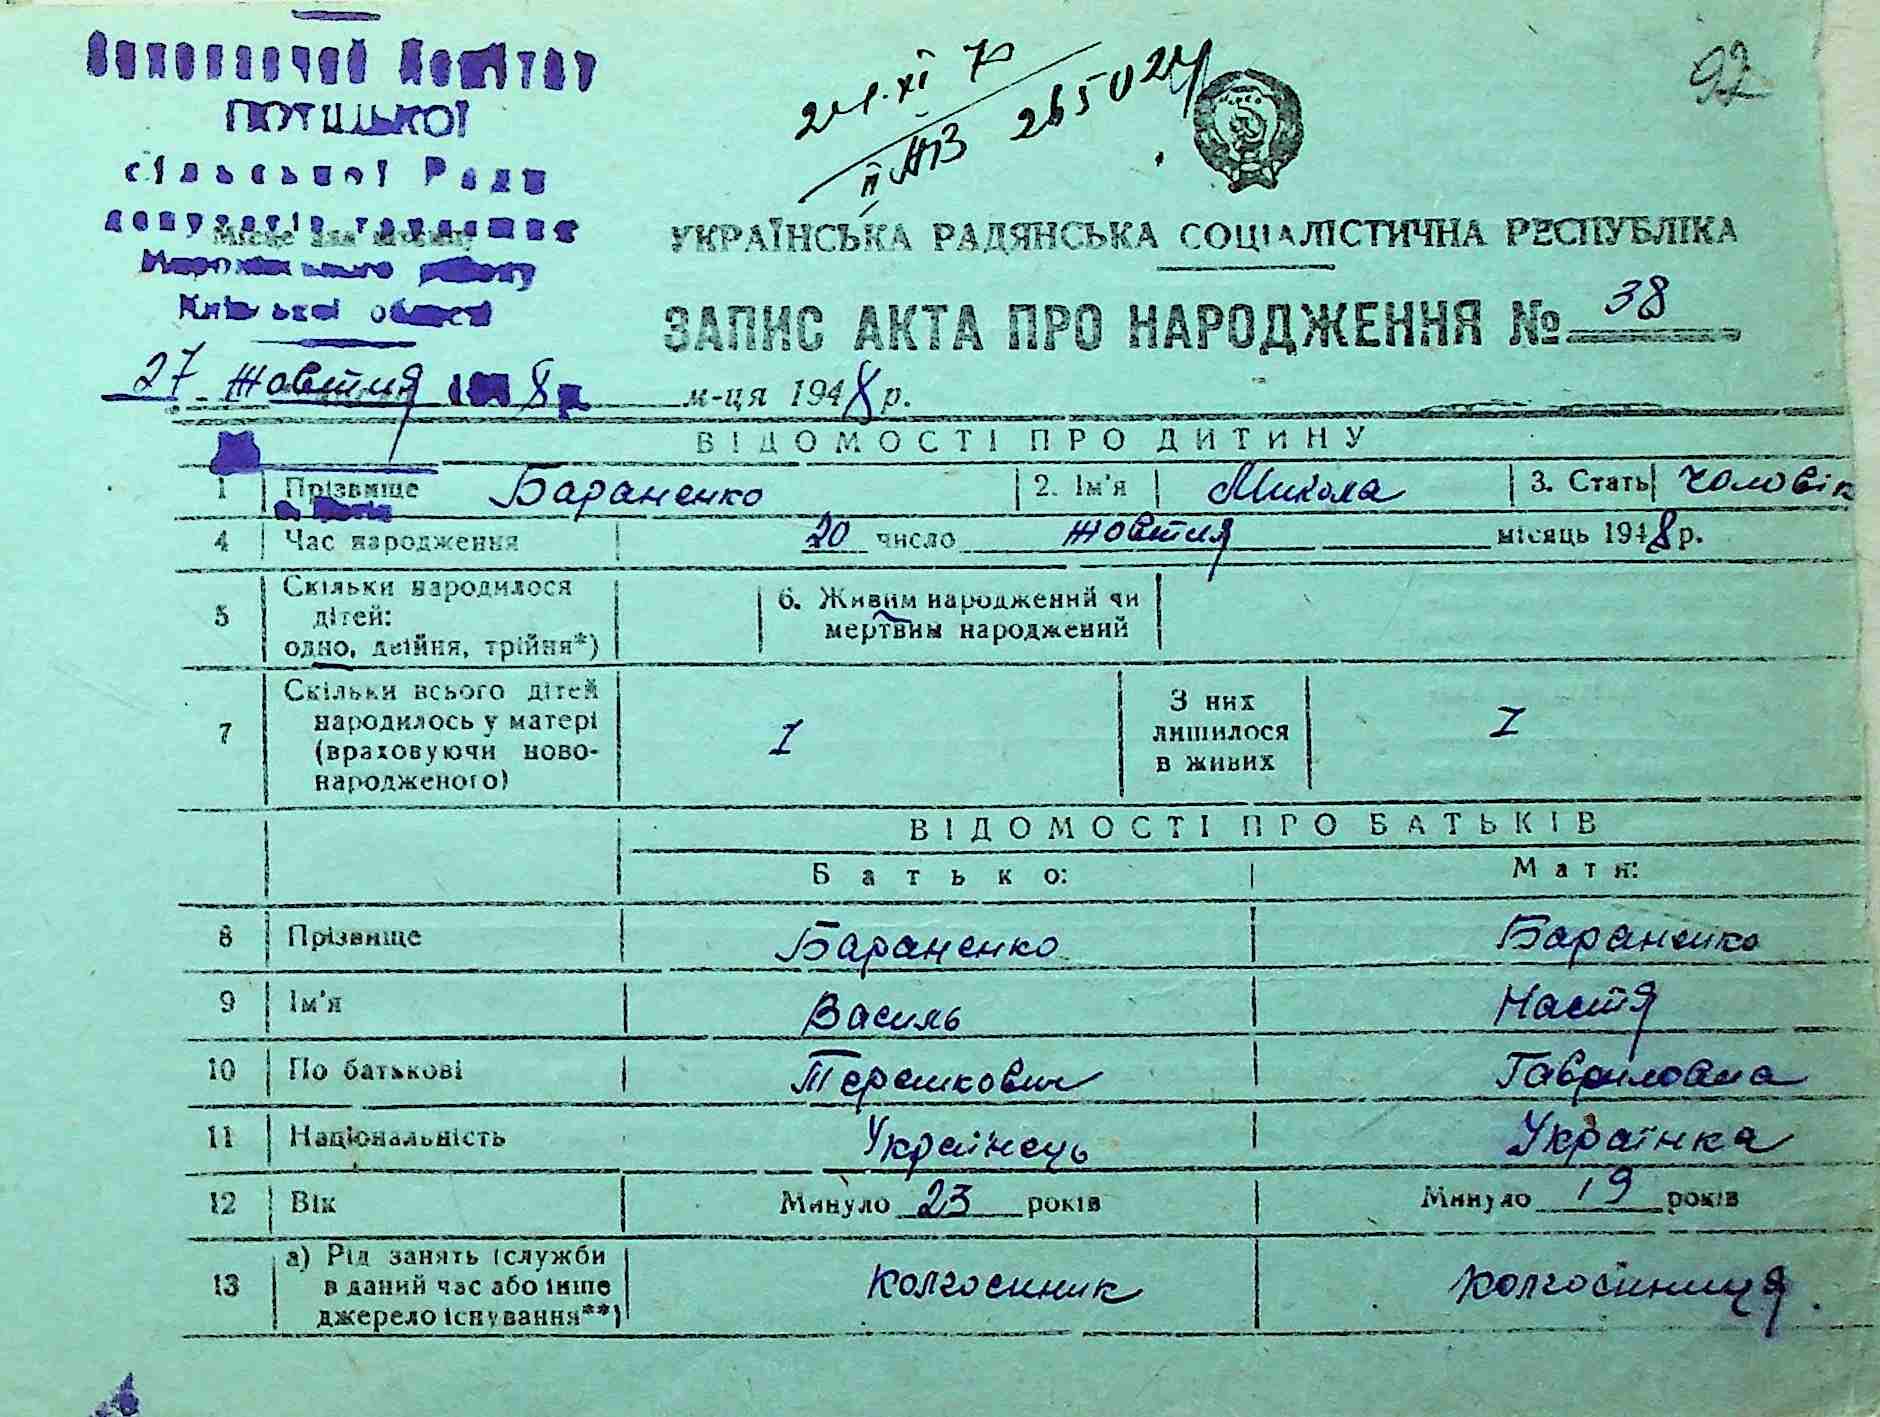 Виконавчий Комітет
ПОТІЦЬКОЇ
сільської Ради
депутатів трудящих
Місце для штампу
району
Київської області
27 жовтня 8 р.
92
24.XI 7
II АПЗ 265024
УКРАЇНСЬКА РАДЯНСЬКА СОЦІАЛІСТИЧНА РЕСПУБЛІКА
ЗАПИС АКТА ПРО НАРОДЖЕННЯ № 38
м-ця 1948 р.
ВІДОМОСТІ ПРО ДИТИНУ
1 Прізвище Бараненко 2. Ім'я Микола 3. Стать чоловік
4 Час народження 20 число жовтня місяць 1948 р.
5 Скільки народилося дітей: одно, двійня, трійня*) 6. Живим народжений чи мертвим народжений
7 Скільки всього дітей народилось у матері (враховуючи ново-народженого) 1 З них лишилося в живих 1
ВІДОМОСТІ ПРО БАТЬКІВ
Батько: Мати:
8 Прізвище Бараненко Бараненко
9 Ім'я Василь Настя
10 По батькові Терешкович Гавриловна
11 Національність Українець Українка
12 Вік Минуло 23 років Минуло 19 років
13 а) Рід занять (служби в даний час або інше джерело існування**) Колгоспник Колгоспниця